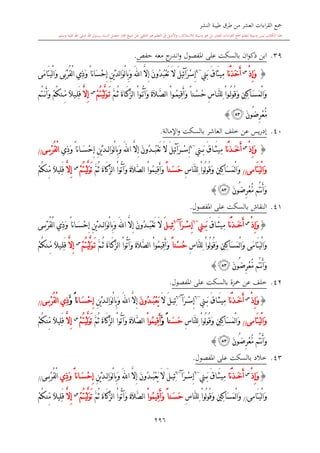 جمع القراءات العشر من طرق طيبة النشر
٣٩. ابن ذكوان بالسكت على المفصول واندرج معه حفص.
﴿ وَإِذْ أَخَذْنَا مِيثَاقَ بَنِي إِسْرَائِيلَ لَا تَعْبُدُونَ إِلَّا اللَّهَ وَبِالْوَالِدَيْنِ إِحْسَانًا وَذِي الْقُرْبَى وَالْيَتَامَى
وَالْمَسَاكِينِ وَقُولُوا لِلنَّاسِ حُسْنًا وَأَقِيمُوا الصَّلَاةَ وَآتُوا الزَّكَاةَ ثُمَّ تَوَلَّيْتُمْ إِلَّا قَلِيلًا مِنْكُمْ وَأَنْتُمْ
مُعْرِضُونَ ﴿٨٣﴾ ﴾
٤٠. إدريس عن خلف العاشر بالسكت والإمالة.
﴿ وَإِذْ أَخَذْنَا مِيثَاقَ بَنِي إِسْرَائِيلَ لَا تَعْبُدُونَ إِلَّا اللَّهَ وَبِالْوَالِدَيْنِ إِحْسَانًا وَذِي الْقُرْبَى
وَالْيَتَامَى وَالْمَسَاكِينِ وَقُولُوا لِلنَّاسِ حُسْنًا وَأَقِيمُوا الصَّلَاةَ وَآتُوا الزَّكَاةَ ثُمَّ تَوَلَّيْتُمْ إِلَّا قَلِيلًا مِنْكُمْ
وَأَنْتُمْ مُعْرِضُونَ ﴿٨٣﴾ ﴾
٤١. النقاش بالسكت على المفصول.
﴿ وَإِذْ أَخَذْنَا مِيثَاقَ بَنِي إِسْرَائِيلَ لَا تَعْبُدُونَ إِلَّا اللَّهَ وَبِالْوَالِدَيْنِ إِحْسَانًا وَذِي الْقُرْبَى
وَالْيَتَامَى وَالْمَسَاكِينِ وَقُولُوا لِلنَّاسِ حُسْنًا وَأَقِيمُوا الصَّلَاةَ وَآتُوا الزَّكَاةَ ثُمَّ تَوَلَّيْتُمْ إِلَّا قَلِيلًا مِنْكُمْ
وَأَنْتُمْ مُعْرِضُونَ ﴿٨٣﴾ ﴾
٤٢. خلف عن حمزة بالسكت على المفصول.
﴿ وَإِذْ أَخَذْنَا مِيثَاقَ بَنِي إِسْرَائِيلَ لَا يَعْبُدُونَ إِلَّا اللَّهَ وَبِالْوَالِدَيْنِ إِحْسَانًا وَذِي الْقُرْبَى
وَالْيَتَامَى وَالْمَسَاكِينِ وَقُولُوا لِلنَّاسِ حَسَنًا وَأَقِيمُوا الصَّلَاةَ وَآتُوا الزَّكَاةَ ثُمَّ تَوَلَّيْتُمْ إِلَّا قَلِيلًا مِنْكُمْ
وَأَنْتُمْ مُعْرِضُونَ ﴿٨٣﴾ ﴾
٤٣. خلاد بالسكت على المفصول.
﴿ وَإِذْ أَخَذْنَا مِيثَاقَ بَنِي إِسْرَائِيلَ لَا يَعْبُدُونَ إِلَّا اللَّهَ وَبِالْوَالِدَيْنِ إِحْسَانًا وَذِي الْقُرْبَى
وَالْيَتَامَى وَالْمَسَاكِينِ وَقُولُوا لِلنَّاسِ حَسَنًا وَأَقِيمُوا الصَّلَاةَ وَآتُوا الزَّكَاةَ ثُمَّ تَوَلَّيْتُمْ إِلَّا قَلِيلًا مِنْكُمْ
٢٩٦